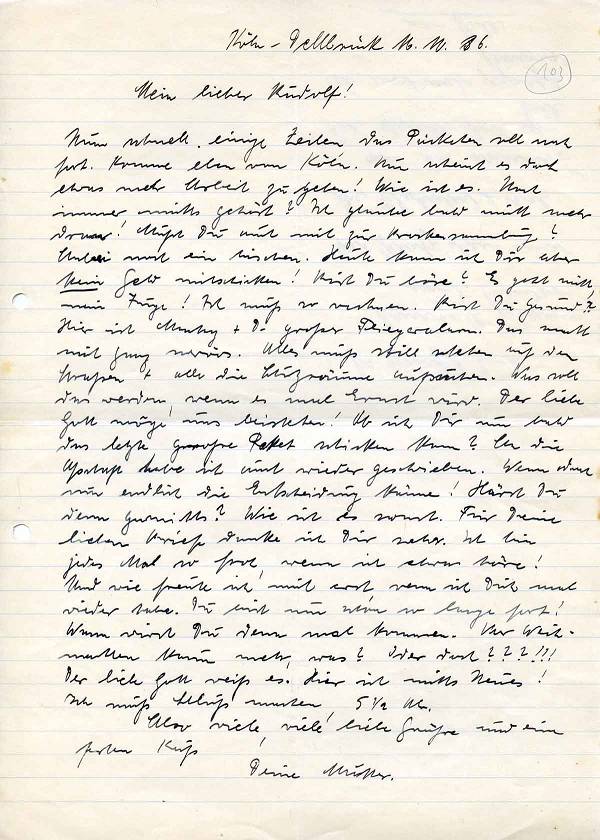 Köln-Dellbrück 16. XI. 36.
103
Mein lieber Rudolf!
Nun schnell einige Zeilen das Päckchen soll noch
fort. Komme eben von Köln. Nun scheint es doch
etwas mehr Arbeit zu geben! Wie ist es. Noch
immer nichts gehört? Ich glaube bald nicht mehr
dran! Mußt Du auch mit zur
noch ein bischen. Heute kann ich Dir aber
kein Geld mitschicken! Bist Du böse? Es geht nicht,
mein Junge! Ich muß so rechnen. Bist Du gesund?
Hier ist Montag + D. großer Fliegeralarm. Das macht
mich ganz nervös. Alles muß still stehen auf den
Straßen + alle die Schutzräume aufsuchen. Was soll
das werden, wenn es mal Ernst wird. Der liebe
Gott möge uns beistehen! Ob ich Dir nun bald
das letzte große Paket schicken kann? An die
habe ich auch wieder geschrieben. Wenn doch
nun endlich die Entscheidung käme! Hörst Du
denn garnichts? Wie ist es sonst. Für Deine
lieben Briefe danke ich Dir sehr. Ich bin
jedes Mal so froh, wenn ich etwas höre!
Und wie freute ich mich erst, wenn ich Dich mal
wieder habe. Du bist nun schon so lange fort!
Wann wirst Du denn mal kommen. Vor Weih-
nachten kaum mehr, was? Oder doch???!!!
Der liebe Gott weiß es. Hier ist nichts Neues!
Ich muß Schluß machen, 5 1/2 Uhr.
Also viele, viele liebe Grüße und ein
festen Kuß
Deine Mutter.